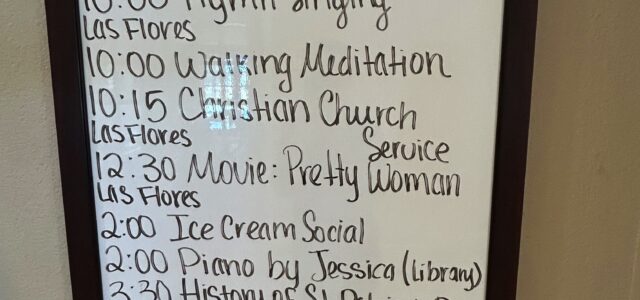 10:00 Hymn Singing
Las Flores
10:00 Walking Meditation
10:15 Christian Church
Las Flores
Service
12:30 Movie: Pretty Woman
Las Flores
2:00 Ice Cream Social
2:00 Piano by Jessica (Library)
3:30 History of St.